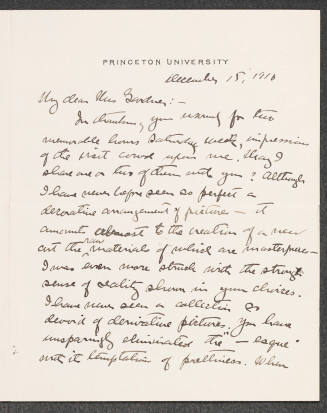 PRINCETON UNIVERSITY
December 15, 1910
My dear Mrs Gardner: —
In thanking you warmly for two
memorable hours Saturday week, impressions
of the visit crowd upon me. May I
share one or two of them with you? Although
I have never before seen so perfect a
decorative arrangement of pictures — it
amounts almost to the creation of a new
art the raw materials of which are masterpieces —
I was even more struck with the strong
sense of reality shown in your choices.
I have never seen a collection so
devoid of derivative pictures. You have
unsparingly eliminated the — esque
with its temptation of prettiness. When